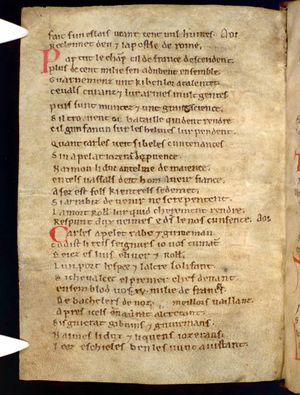 fait sun eslais ueant cent mil humes. Aoi.
Recleimet deu ⁊ lapostle de rome.
Par tut le champ cil de france descendent.
plus de cent milie sen adubent ensemble.
Guarnemenz unt ki ben lor atalente.
ceuals curanz ⁊ lur armes mult gentes.
puis sunt muntez ⁊ unt grant science.
Sil troeuent ou bataille quident rendre.
Cil gunfanun sur les helmes lur pendent.
Quant carles ueit si beles cuntenances.
Sin apelat iozeran de prouence.
Naimon li duc antelme de maience.
en tels uassals deit hom aueir fiance.
Asez est fols ki entrels se dement.
Si arrabiz de uenir ne se repentent.
La mort Roll lur quid cherement rendre.
Respunt dux neimes ⁊ deus le nos cunsente. Aoi.
Carles apelet rabel ⁊ guineman.
Co dist li reis seignurs io uos cumant.
Seiez es lius oliuer ⁊ Roll.
Lun port lespee ⁊ laltre lolifant.
Si cheualcez el premer chef deuant.
ensembl od uos .xv. milie de francs.
De bachelers de noz meillors uaillant.
Apres icels en aurat altretant.
Sis guierat gibuins ⁊ guinemans.
Naimes li dux ⁊ li quens iozerans.
Icez eschieles ben les uunt aiustant.